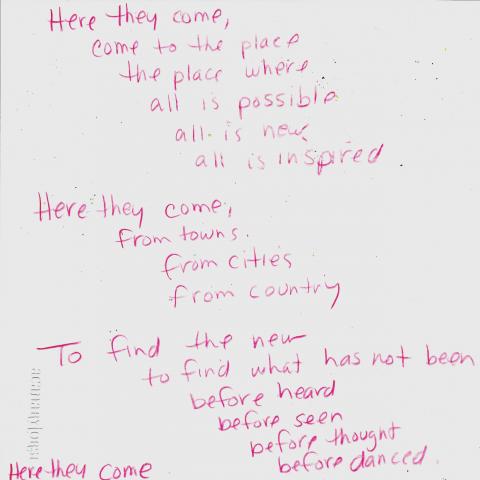 Here they come,
come to the place
the place where
all is possible
all is new
all is inspired
Here they come,
from towns.
from cities
from country
To find the new
to find what has not been
before heard
before seen
before thought
before danced.
Here they come